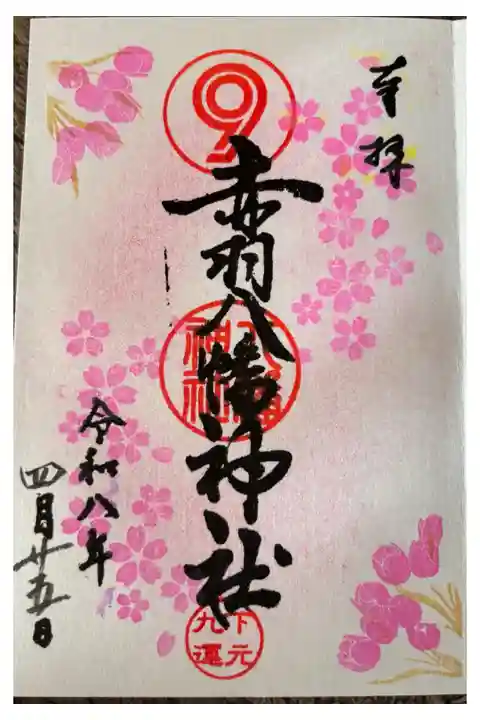 奉拝
9
赤羽八幡神社
八幡神社
下元九運
令和八年
四月廿五日